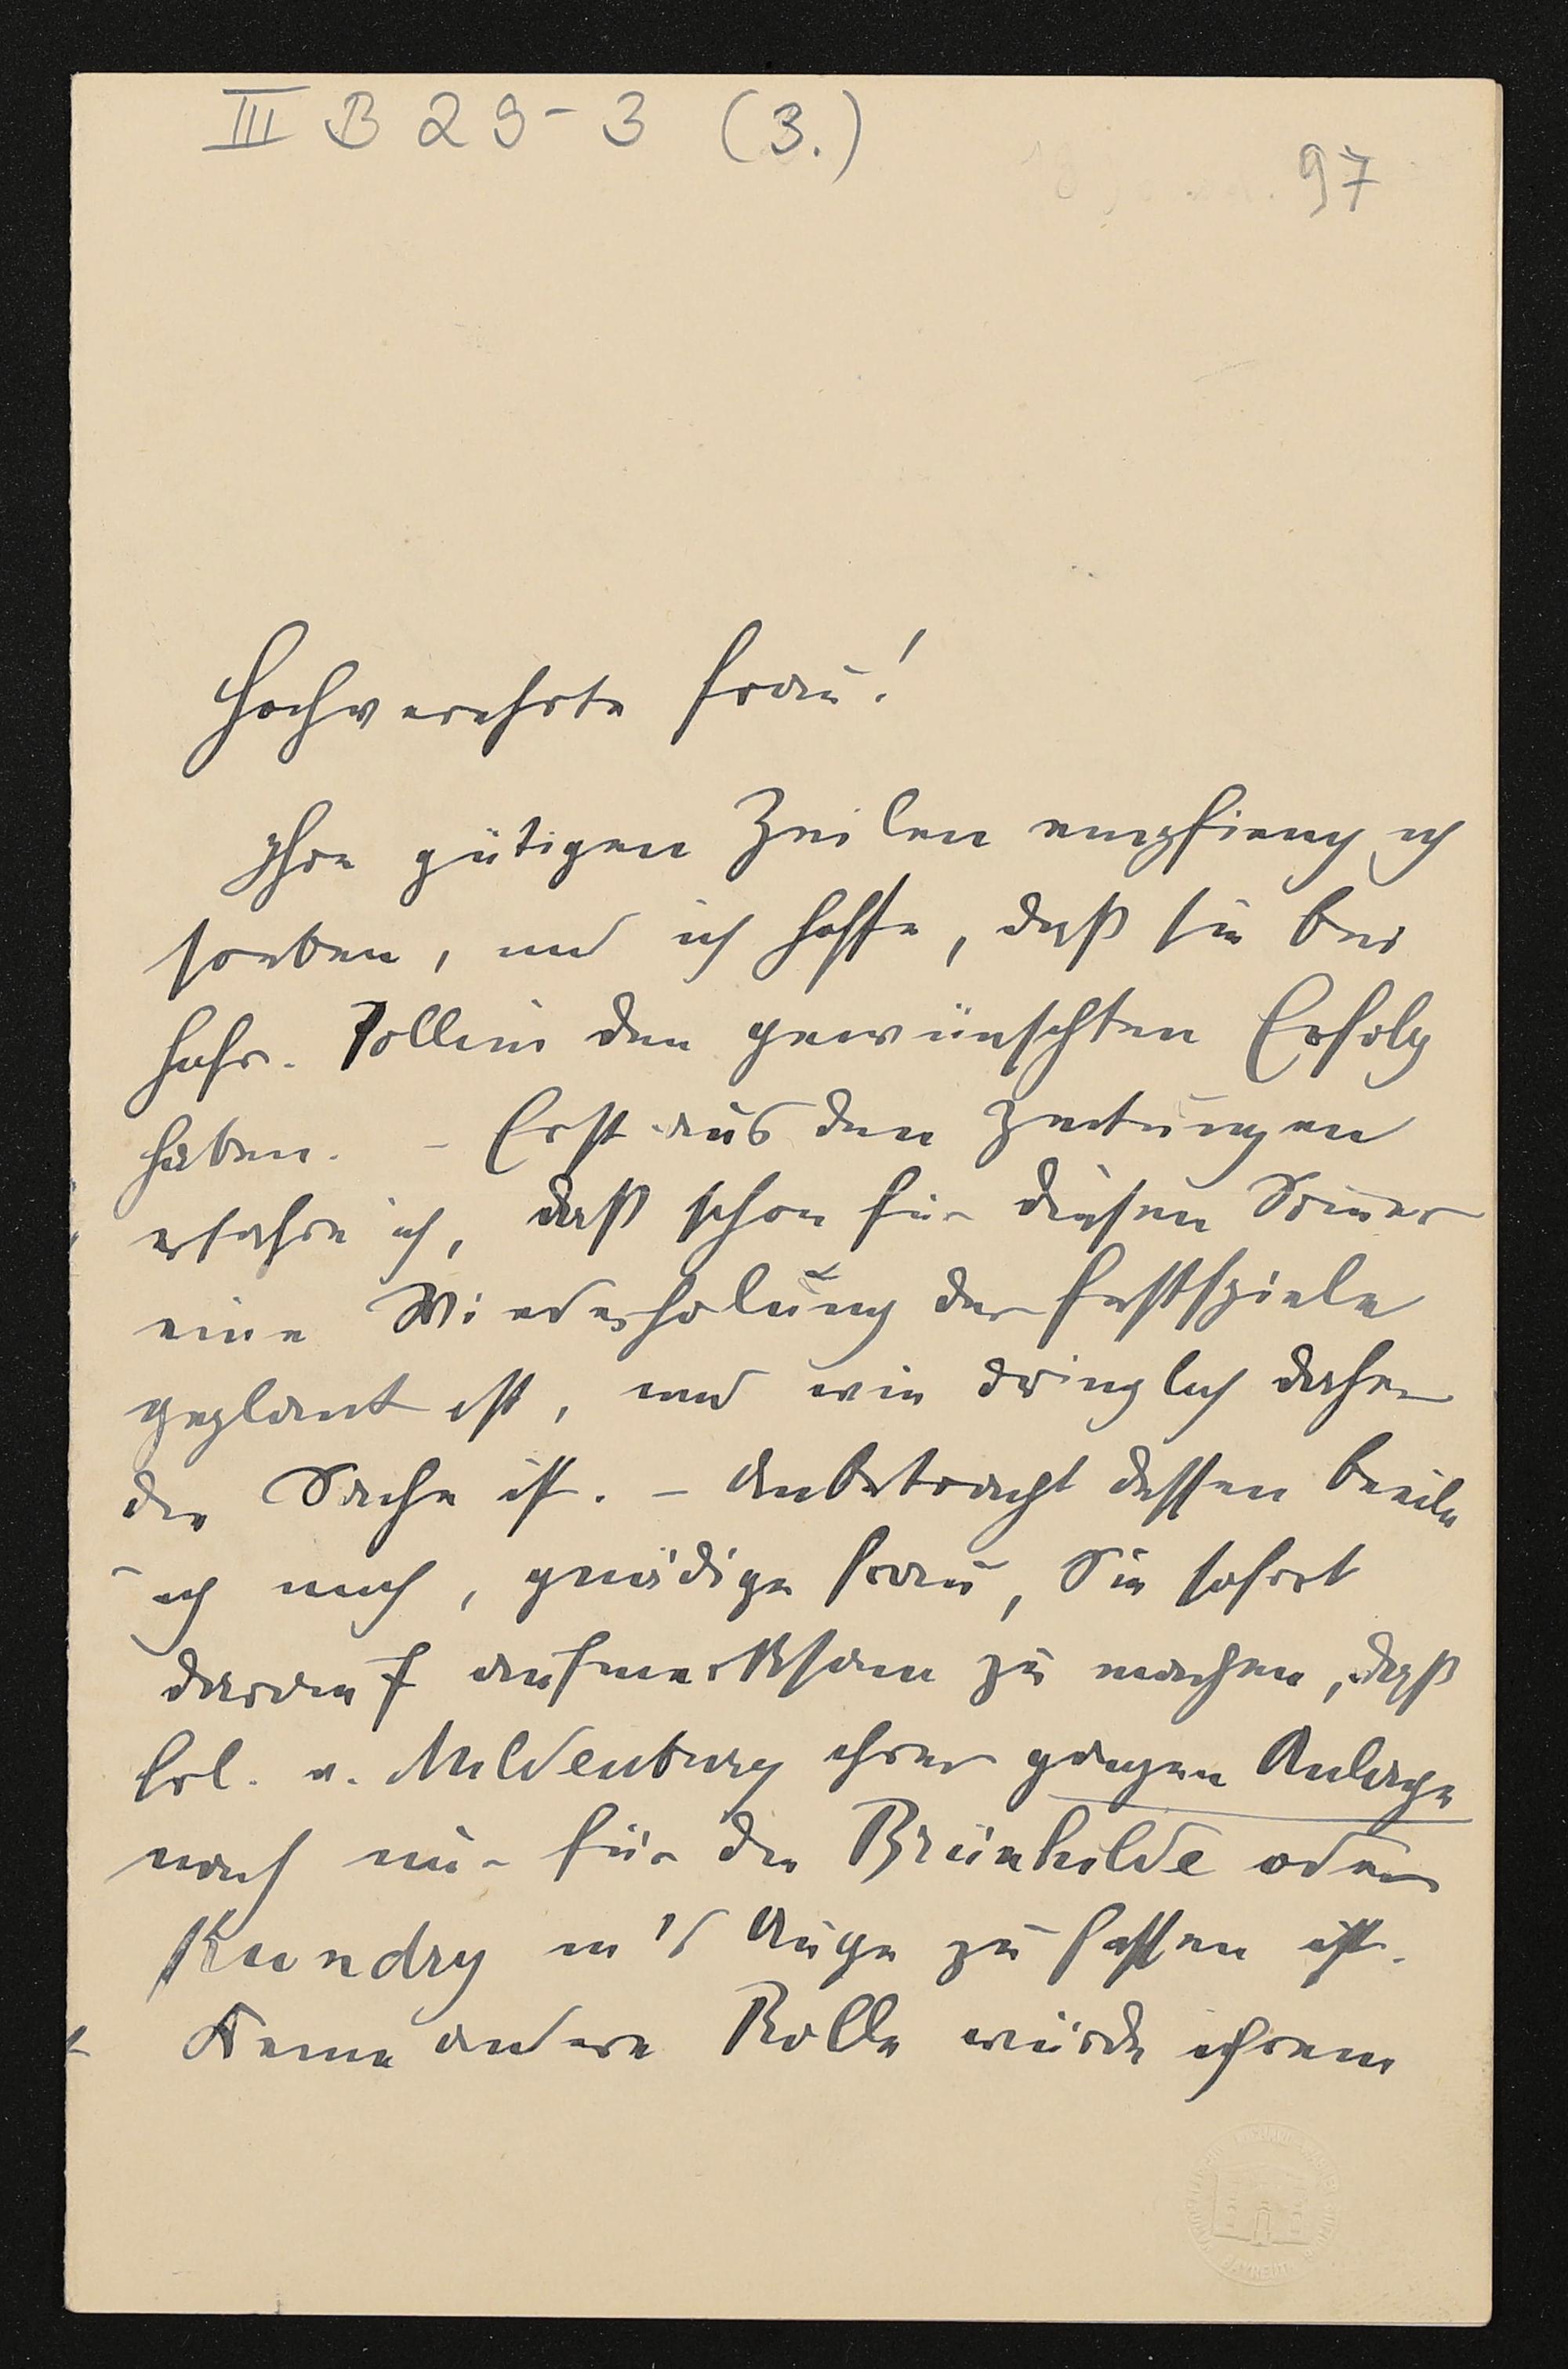 III B 29-3 (3.)
97
Hochverehrte Frau!
Ihre gütigen Zeilen empfieng ich
soeben, und ich hoffe, daß sie bei
Hofr. Pollini den gewünschten Erfolg
haben. – Erst aus den Zeitungen
erfahre ich, daß schon für diesen Som̄er
eine Wiederholung der Festspiele
geplant ist, und wie dringlich daher
die Sache ist. – Anbetracht dessen beeile
ich mich, gnädige Frau, Sie sofort
darauf aufmerksam zu machen, daß
Frl. v. Mildenburg ihrer ganzen Anlage
nach nur für die Brünhilde oder
Kundry in's Auge zu fassen ist.
Keine andere Rolle würde ihrem